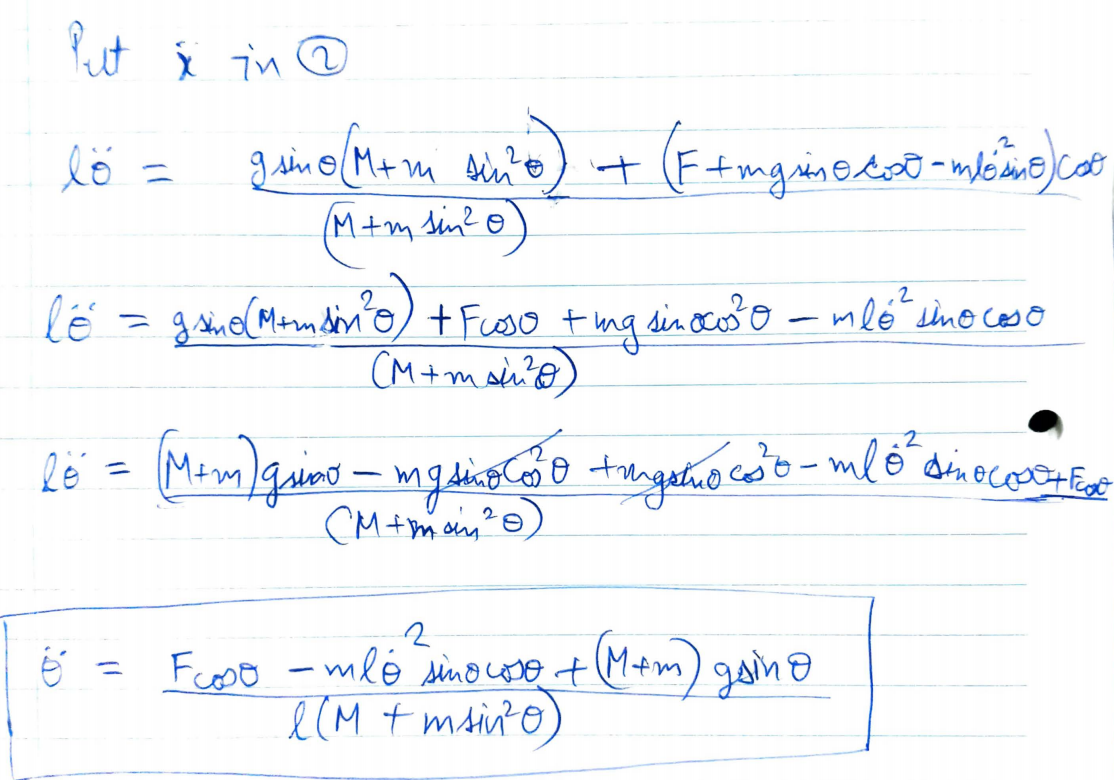 Put ẍ in ②
lθ̈ = gsinθ(M+m sin²θ) + (F+mgsinθcosθ-mlθ̇²sinθ)cosθ
(M+m sin²θ)
lθ̈ = gsinθ(M+msin²θ) + Fcosθ + mg sinθcos²θ - mlθ̇² sinθcosθ
(M+m sin²θ)
lθ̈ = (M+m)gsinθ - mgsinθcos²θ + mgsinθcos²θ - mlθ̇² sinθcosθ+Fcosθ
(M+m sin²θ)
θ̈ = Fcosθ - mlθ̇² sinθcosθ + (M+m) gsinθ
l(M + msin²θ)